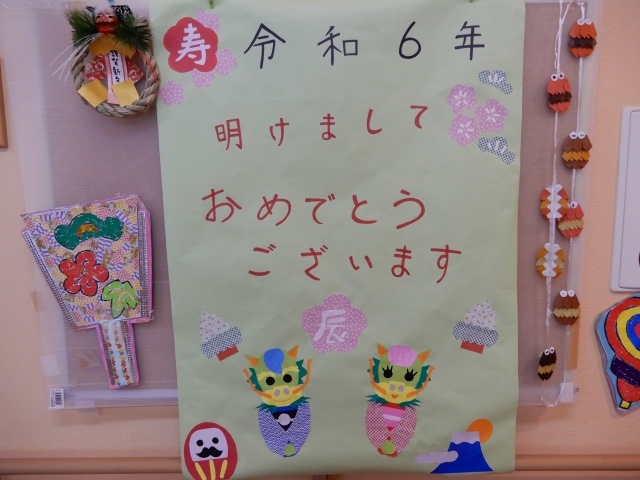 寿 令和6年
明けまして
おめでとう
ございます
辰